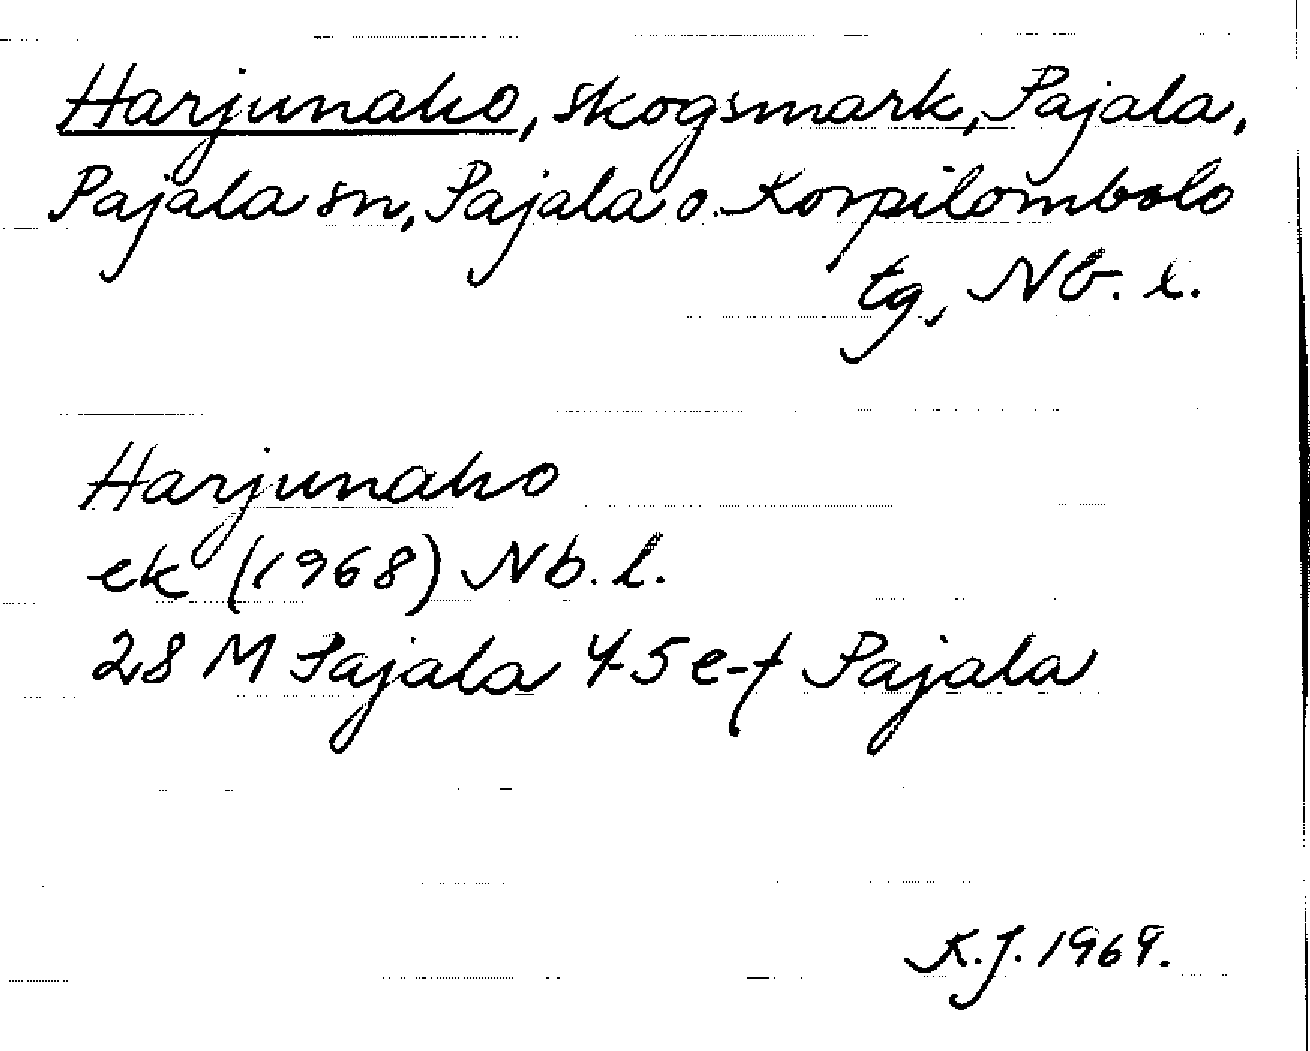 Harjunaho, skogsmark, Pajala,
Pajala sn, Pajala o. Korpilombolo
tg, Nb. l.
Harjunaho
ek (1968) Nb. l.
28 M Pajala 4-5 e-f Pajala
K.J. 1969.